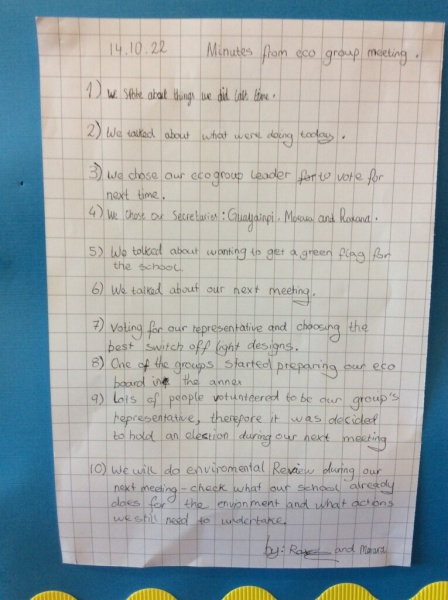 14.10.22 Minutes from eco group meeting.
1) We spoke about things we did last time.
2) We talked about what were doing today.
3) We chose our ecogroup leader to vote for
next time.
4) We chose our Secretaries: and Roxana.
5) We talked about wanting to get a green flag for
the school
6) We talked about our next meeting.
7) Voting for our representative and choosing the
best switch off light designs.
8) One of the groups started preparing our eco
board in the annex
9) Lots of people volunteered to be our group's
representative, therefore it was decided
to hold an election during our next meeting
10) We will do enviromental Review during our
next meeting - check what our school already
does for the envionment and what actions
we still need to undertake.
by: and